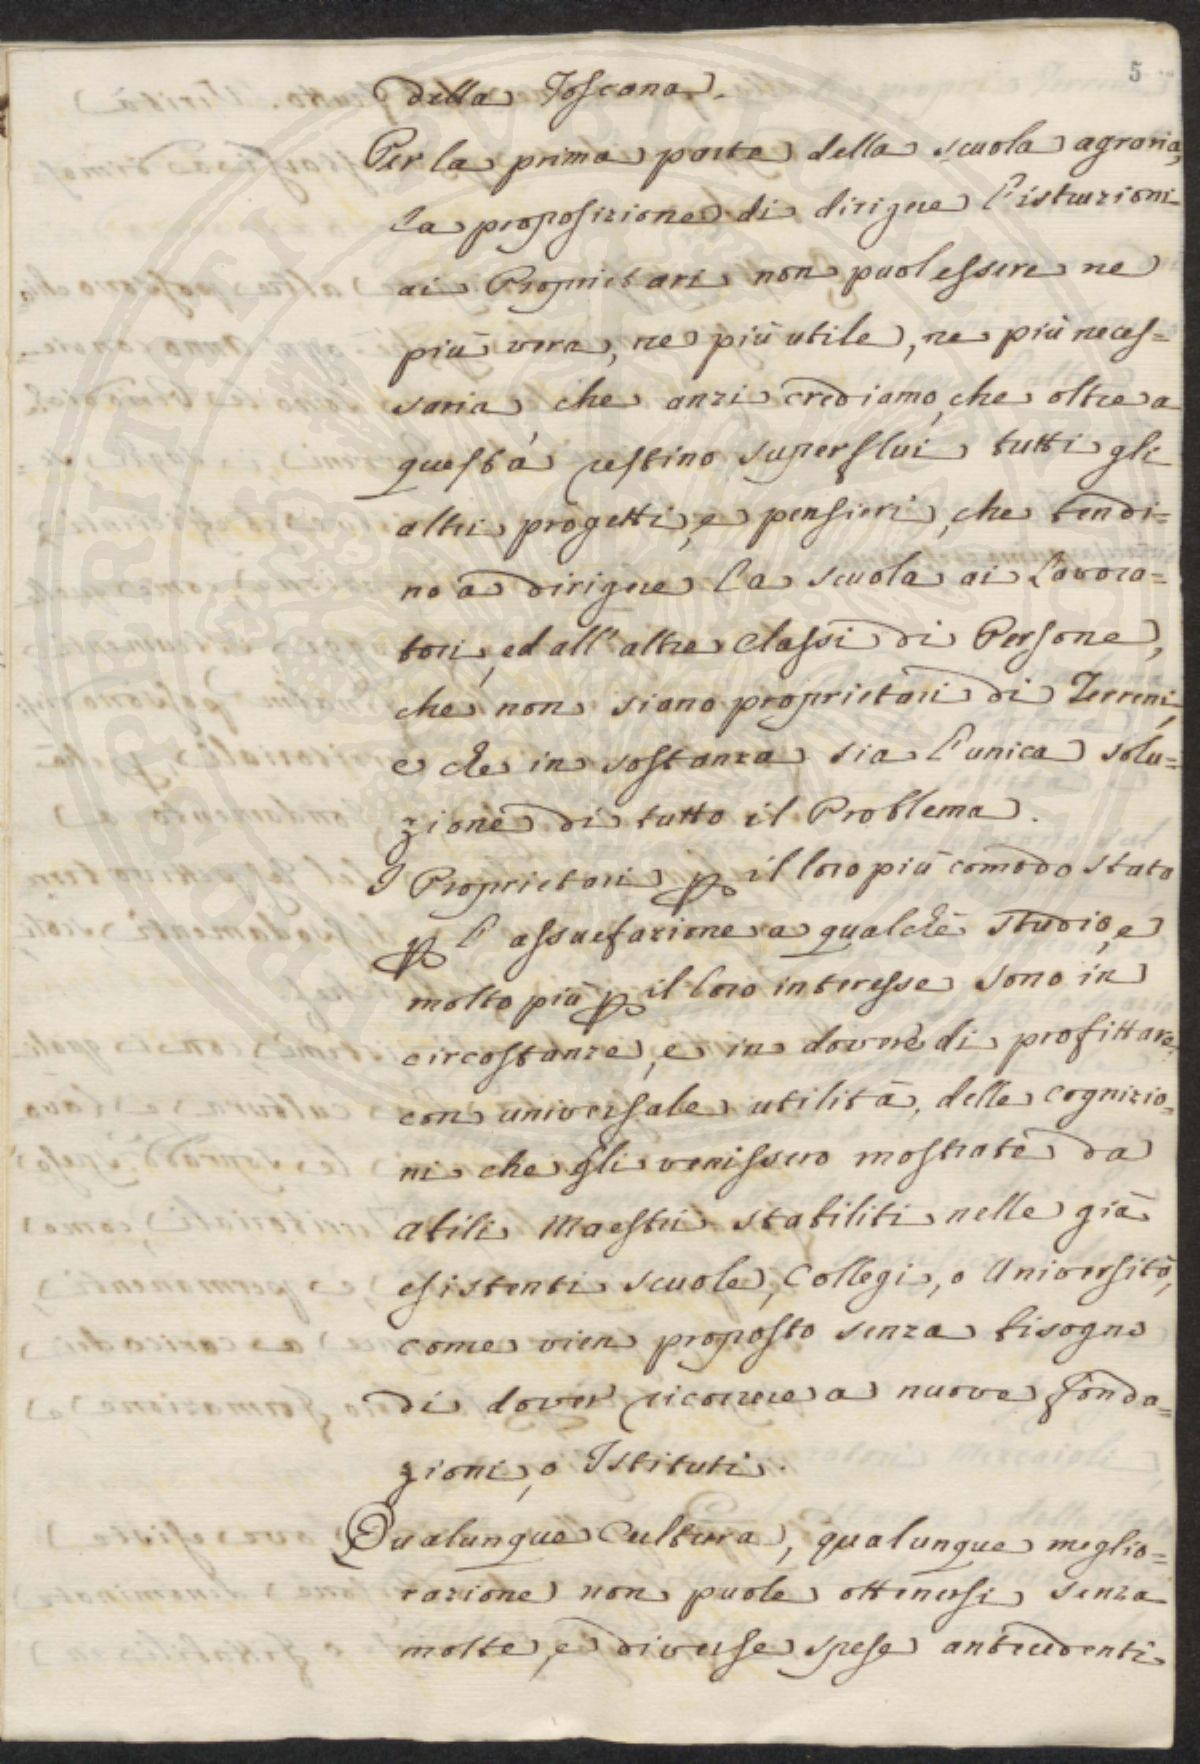 5
della Toscana.
Per la prima parte della scuola agraria,
la proposizione di dirigere l'istruzioni
ai Proprietari non puol essere ne
più vera, ne più utile, ne più neces=
saria, che anzi crediamo, che oltre a
questa, restino superflui tutti gli
altri progetti, e pensieri, che tendi=
no a dirigere la scuola ai Lavora=
tori, ed all'altre Classi di Persone,
che non siano proprietari di Terreni,
e che in sostanza sia l'unica solu=
zione di tutto il Problema.
I Proprietari p il loro più comodo stato
p l'assuefazione a qualche studio, e
molto più p il loro interesse sono in
circostanze, e in dovere di profittare
con universale utilità, delle cognizio=
ni che gli venissero mostrate da
abili Maestri stabiliti nelle già
esistenti scuole, Collegi, o Università,
come vien proposto senza bisogno
di dover ricorrere a nuove fonda=
zioni, o Istituti.
Qualunque Cultura, qualunque meglio=
razione non puole ottenersi senza
molte, e diverse spese antecedenti